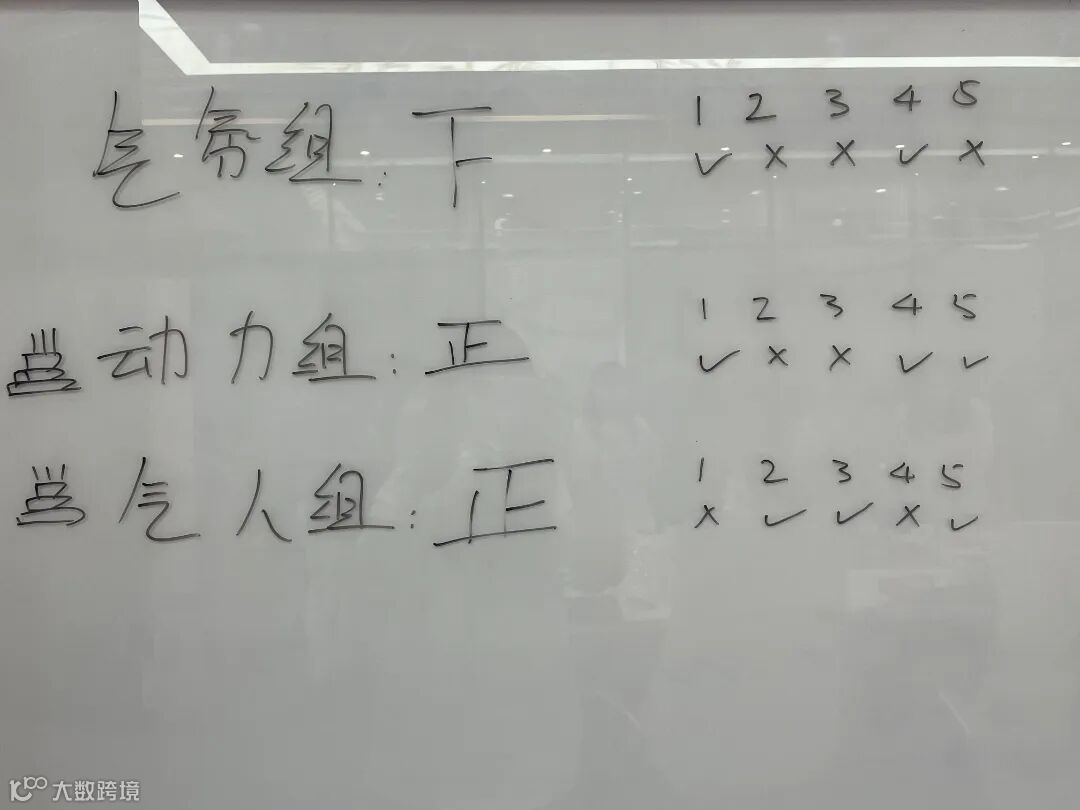 气氛组:下 1 2 3 4 5
✓ × × ✓ ×
动力组:正 1 2 3 4 5
✓ × × ✓ ✓
气人组:正 1 2 3 4 5
× ✓ ✓ × ✓
大数跨境